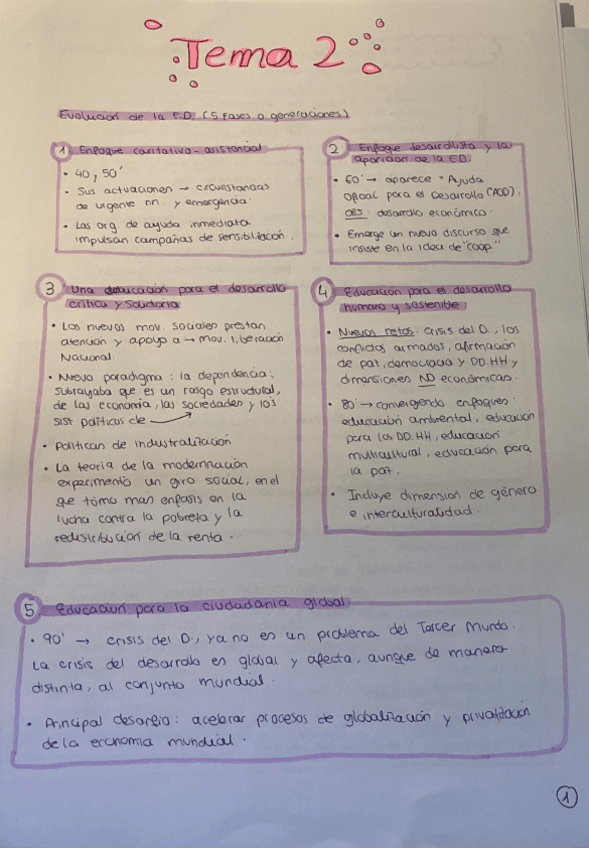 Tema 2
Evolución de la E.D. (5 Fases o generaciones)
1 Enfoque caritativo-asistencial
• 40, 50'
• Sus actuaciones → circunstancias
de urgente nn. y emergencia.
• Las org. de ayuda inmediata
impulsan campañas de sensibilización.
2 Enfoque desarrollista y la
aparición de la ED.
• 60' → aparece "Ayuda
Oficial para el Desarrollo (AOD),
OBJ: desarrollo económico.
• Emerge un nuevo discurso que
insiste en la idea de "coop"
3 Una educación para el desarrollo
crítica y solidaria
• Los nuevos mov. sociales prestan
atención y apoyo a → mov. liberación
Nacional.
• Nuevo paradigma: la dependencia:
subrayaba que es un rasgo estructural,
de las economía, las sociedades y los
sist políticas de →
• Políticas de industralización
• La teoría de la modernización
experimentó un giro social, en el
que tómo mas enfasis en la
lucha contra la pobreza y la
redistribución de la renta.
4 Educación para el desarrollo
humano y sostenible
• Nuevos retos. Crisis del D., los
conflictos armados, afirmación
de paz, democracia y DD.HH y
dimensiones NO económicas.
• 80' → convergendo enfoques:
educación ambiental, educación
para los DD.HH, educación
multicultural, educación para
la paz.
• Incluye dimension de género
e interculturalidad.
5. Educación para la ciudadanía global
• 90' → crisis del D., ya no en un problema del Tercer Mundo.
La crisis del desarrollo en global y afecta, aunque de manera
distinta, al conjunto mundial.
• Principal desafío: acelerar procesos de globalización y privatización
de la economía mundial.
1